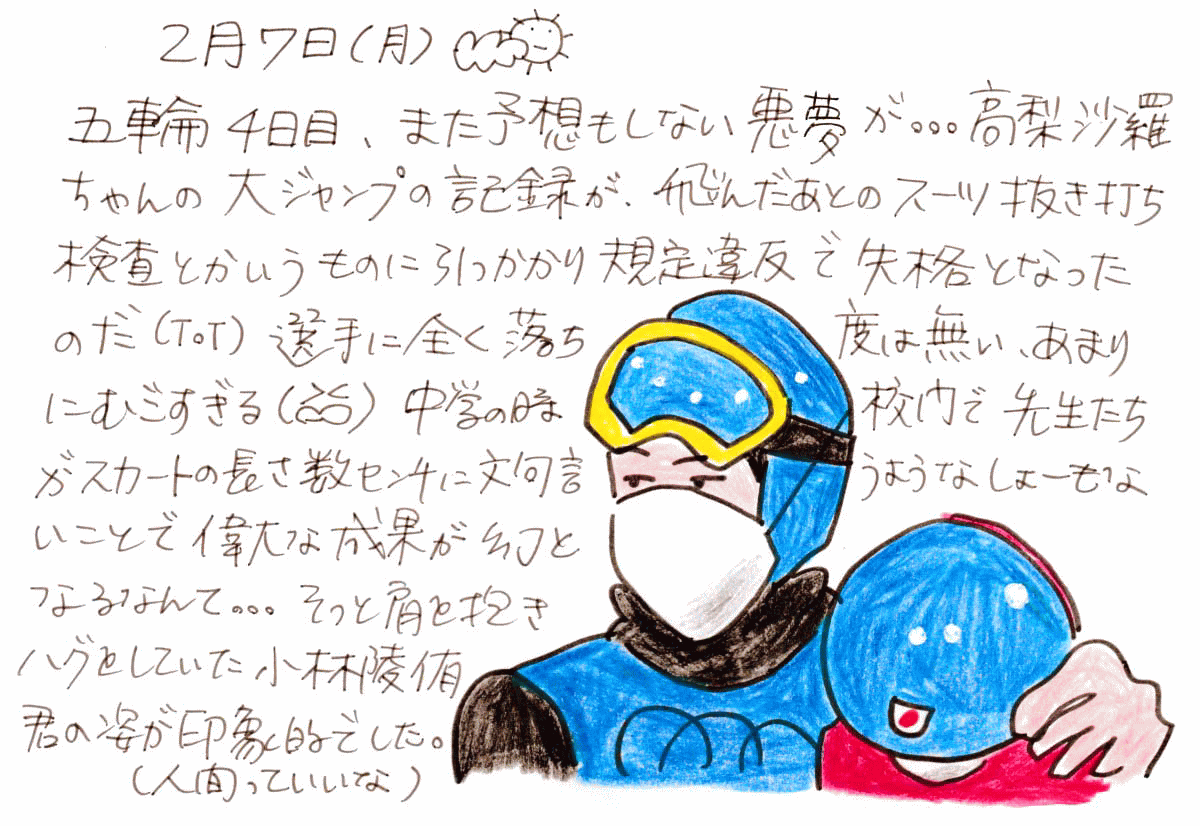 2月7日(月)
五輪4日目、また予想もしない悪夢が...高梨沙羅
ちゃんの大ジャンプの記録が、飛んだあとのスーツ抜き打ち
検査とかいうものに引っかかり規定違反で失格となった
のだ(ToT)選手に全く落ち度は無い、あまり
にむごすぎる( )中学の時校内で先生たち
がスカートの長さ数センチに文句言うようなしょーもな
いことで偉大な成果が幻と
なるなんて...そっと肩を抱き
ハグをしていた小林陵侑
君の姿が印象的でした。
(人間っていいな)